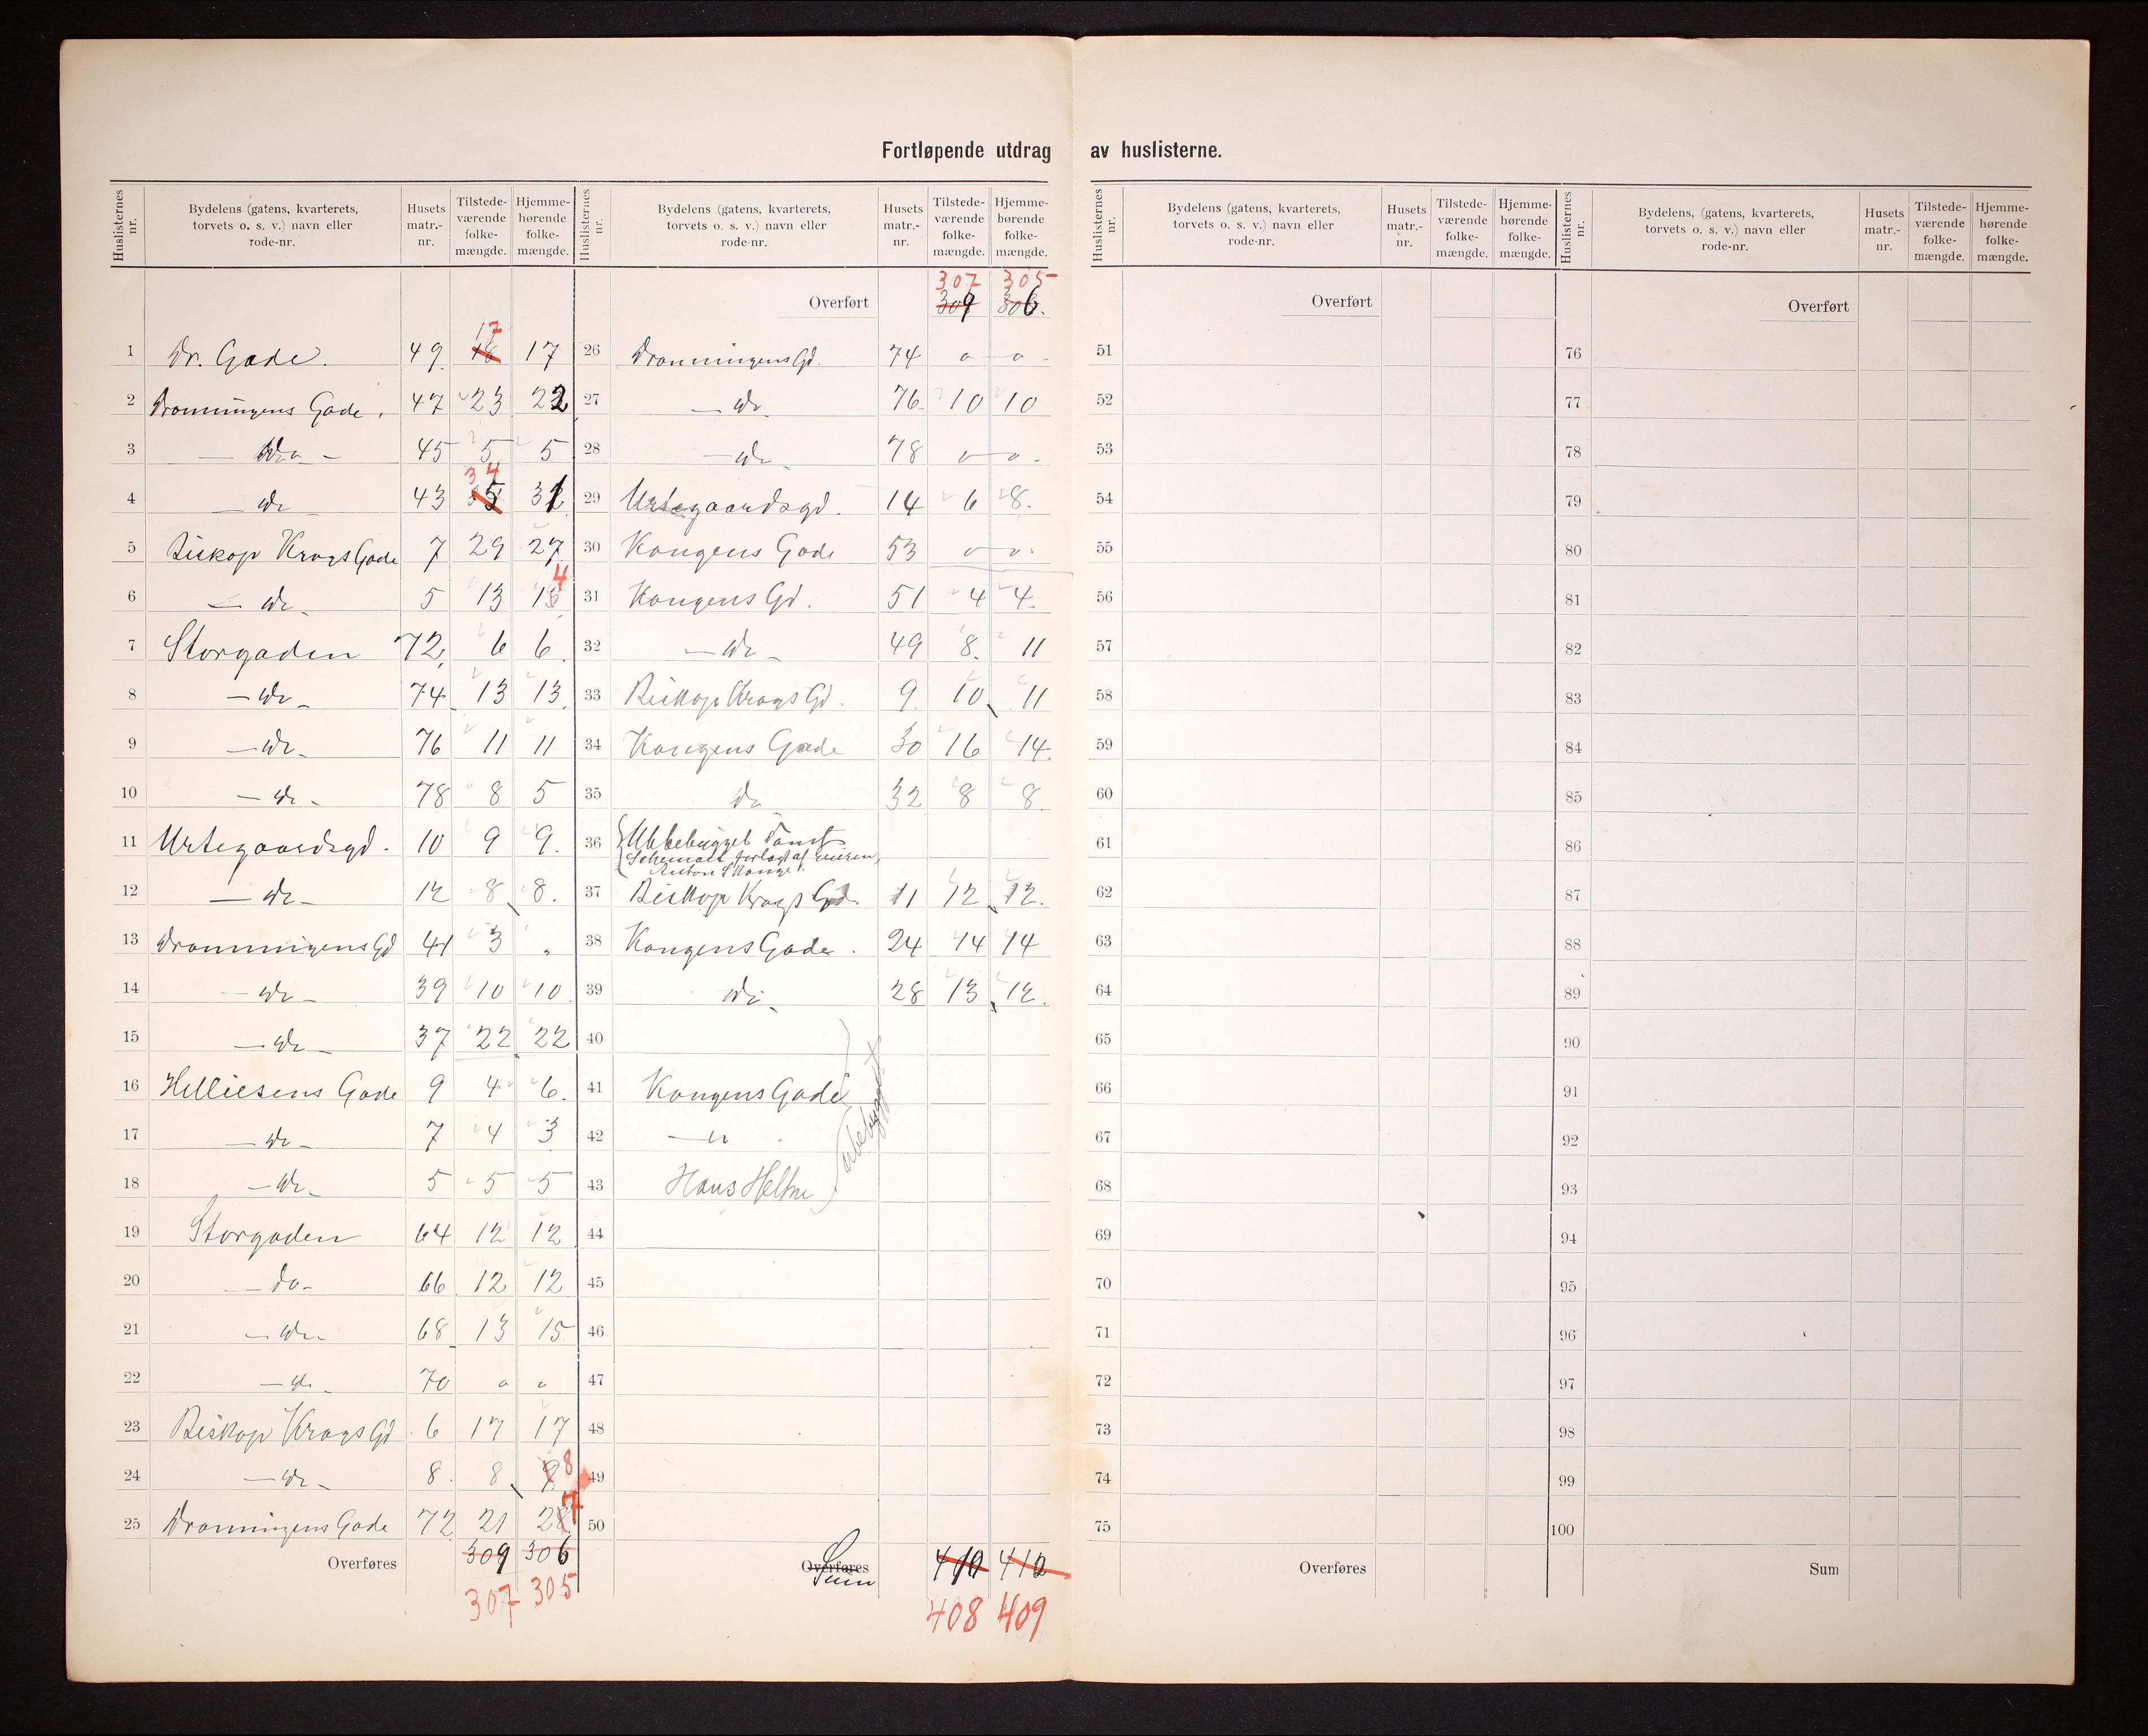 Fortløpende utdrag av huslisterne.
Huslisternes nr. Bydelens (gatens, kvarterets, torvets o. s. v.) navn eller rode-nr. Husets matr.-nr. Tilstedeværende folkemængde. Hjemmehørende folkemængde.
1 Dr. Gade. 49 18 17 17
2 Dronningens Gade. 47 23 22
3 — Do — 45 5 5
4 — do — 43 35 34 31
5 Biskop Krags Gade 7 29 27
6 — do — 5 13 4
7 Storgaden 72 6 6
8 — do — 74 13 13
9 — do — 76 11 11
10 — do — 78 8 5
11 Urtegaardsgd. 10 9 9.
12 — do — 12 8 8.
13 Dronningens Gd 41 3 "
14 — do — 39 10 10
15 — do — 37 22 22
16 Helliesens Gade 9 4 6.
17 — do — 7 4 3
18 — do — 5 5 5
19 Storgaden 64 12 12
20 — do — 66 12 12
21 — do — 68 13 15
22 — do — 70 o o
23 Biskop Krags Gd 6 17 17
24 — do — 8. 8 8
25 Dronningens Gade 72 21 28 7
Overføres 309 306
307 305
Huslisternes nr. Bydelens (gatens, kvarterets, torvets o. s. v.) navn eller rode-nr. Husets matr.-nr. Tilstedeværende folkemængde. Hjemmehørende folkemængde.
307 305
Overført 309 306.
26 Dronningens Gd. 74 o o
27 — do — 76 10 10
28 — do — 78 o o
29 Urtegaardsgd. 14 6 8.
30 Kongens Gade 53 o o
31 Kongens Gd. 51 4 4.
32 — do — 49 8. 11
33 Biskop Krags Gd. 9 10 11
34 Kongens Gade 30 16 14
35 do 32 8 8
36 Ubbebygget Tomt
Anton
37 Biskop Krags Gd. 11 12 12.
38 Kongens Gade. 24 14 14
39 do — 28 13 12.
40
41 Kongens Gade
ubebygget
42 — " —
43 Hans
44
45
46
47
48
49
50
Overføres
Sum 410 412
408 409
Huslisternes nr. Bydelens (gatens, kvarterets, torvets o. s. v.) navn eller rode-nr. Husets matr.-nr. Tilstedeværende folkemængde. Hjemmehørende folkemængde.
Overført
51
52
53
54
55
56
57
58
59
60
61
62
63
64
65
66
67
68
69
70
71
72
73
74
75
Overføres
Huslisternes nr. Bydelens, (gatens, kvarterets, torvets o. s. v.) navn eller rode-nr. Husets matr.-nr. Tilstedeværende folkemængde. Hjemmehørende folkemængde.
Overført
76
77
78
79
80
81
82
83
84
85
86
87
88
89
90
91
92
93
94
95
96
97
98
99
100
Sum